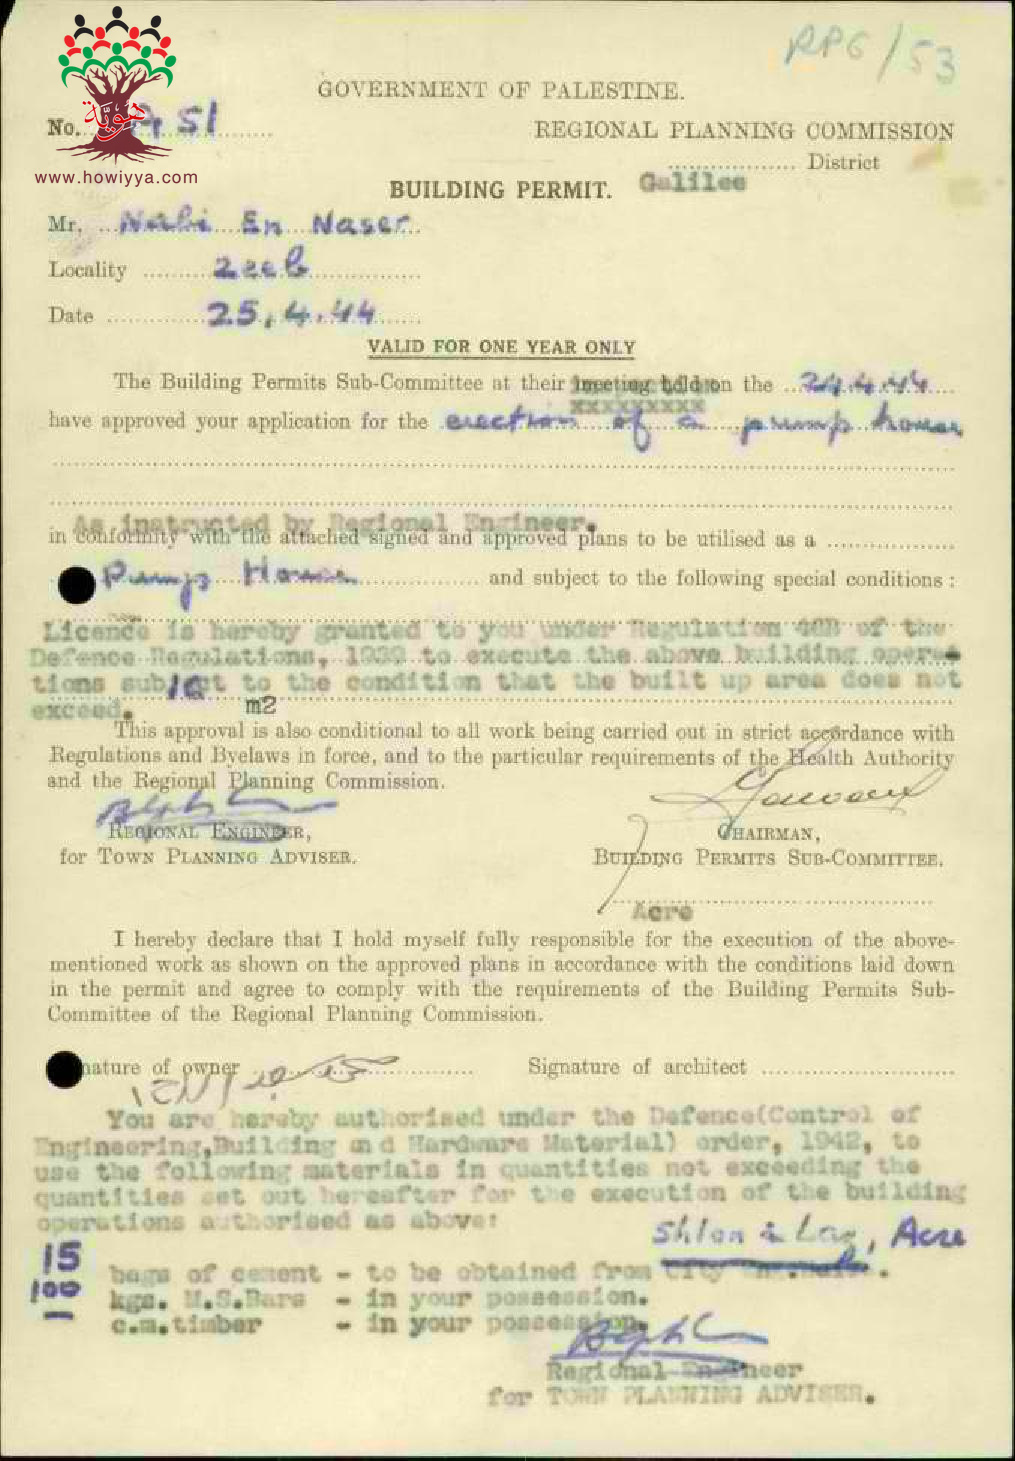 RPG/53
هويّة
www.howiyya.com
GOVERNMENT OF PALESTINE.
No. A 51
REGIONAL PLANNING COMMISSION
Galilee District
BUILDING PERMIT.
Mr. Nabi En Naser
Locality Zeeb
Date 25.4.44
VALID FOR ONE YEAR ONLY
The Building Permits Sub-Committee at their meeting held on the 24.4.44
xxxxxxxxx
have approved your application for the erection of a pump house
As instructed by Regional Engineer.
in conformity with the attached signed and approved plans to be utilised as a
Pump House and subject to the following special conditions :
Licence is hereby granted to you under Regulation 46B of the
Defence Regulations, 1939 to execute the above building opera-
tions subject to the condition that the built up area does not
exceed. 10 m2
This approval is also conditional to all work being carried out in strict accordance with
Regulations and Byelaws in force, and to the particular requirements of the Health Authority
and the Regional Planning Commission.
REGIONAL ENGINEER,
for TOWN PLANNING ADVISER.
CHAIRMAN,
BUILDING PERMITS SUB-COMMITTEE.
Acre
I hereby declare that I hold myself fully responsible for the execution of the above-
mentioned work as shown on the approved plans in accordance with the conditions laid down
in the permit and agree to comply with the requirements of the Building Permits Sub-
Committee of the Regional Planning Commission.
nature of owner
Signature of architect
You are hereby authorised under the Defence(Control of
Engineering,Building and Hardware Material) order, 1942, to
use the following materials in quantities not exceeding the
quantities set out hereafter for the execution of the building
operations authorised as above:
Shlon & Lag, Acre
15 bags of cement - to be obtained from City
100 kgs. M.S.Bars - in your possession.
— c.m.timber - in your possession.
Regional Engineer
for TOWN PLANNING ADVISER.